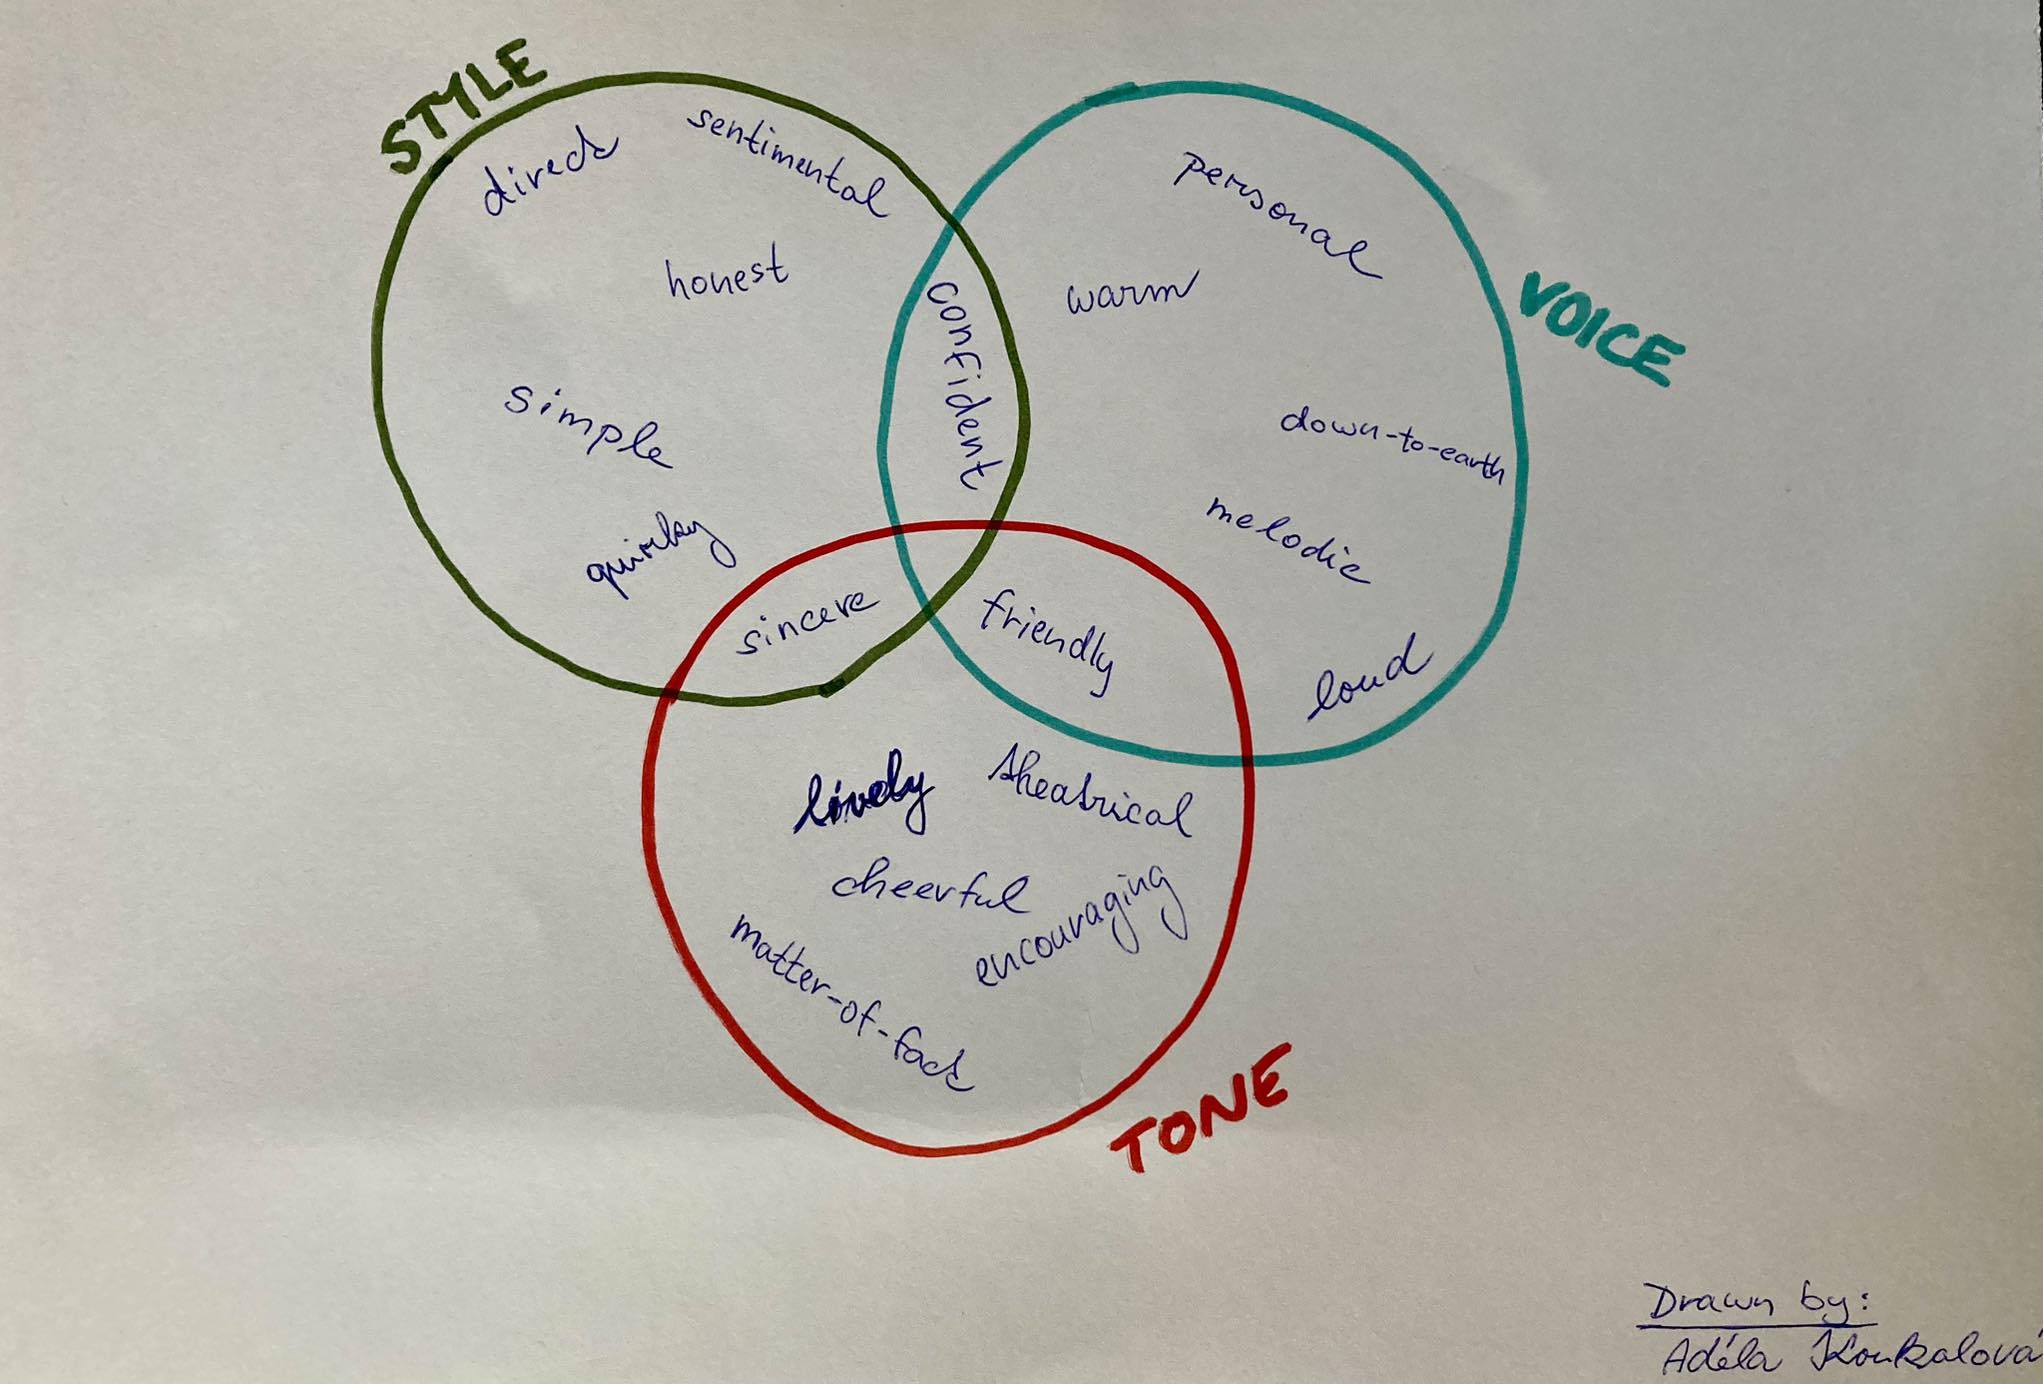 STYLE
direct
sentimental
honest
simple
quirky
confident
personal
warm
VOICE
down-to-earth
melodic
loud
sincere
friendly
lively
theatrical
cheerful
encouraging
matter-of-fact
TONE
Drawn by:
Adéla Koukalová